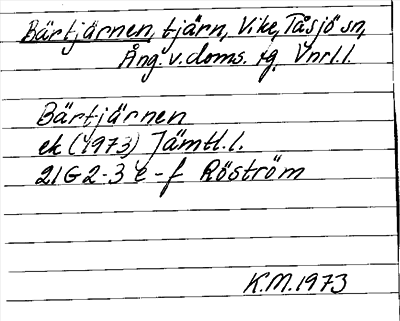 Bärtjärnen, tjärn, Vike, Tåsjö sn,
Ång. v. doms. fg. Vnrl. l.
Bärtjärnen
ek (1973) Jämtl. l.
21G 2-3 e-f Röström
K.M. 1973